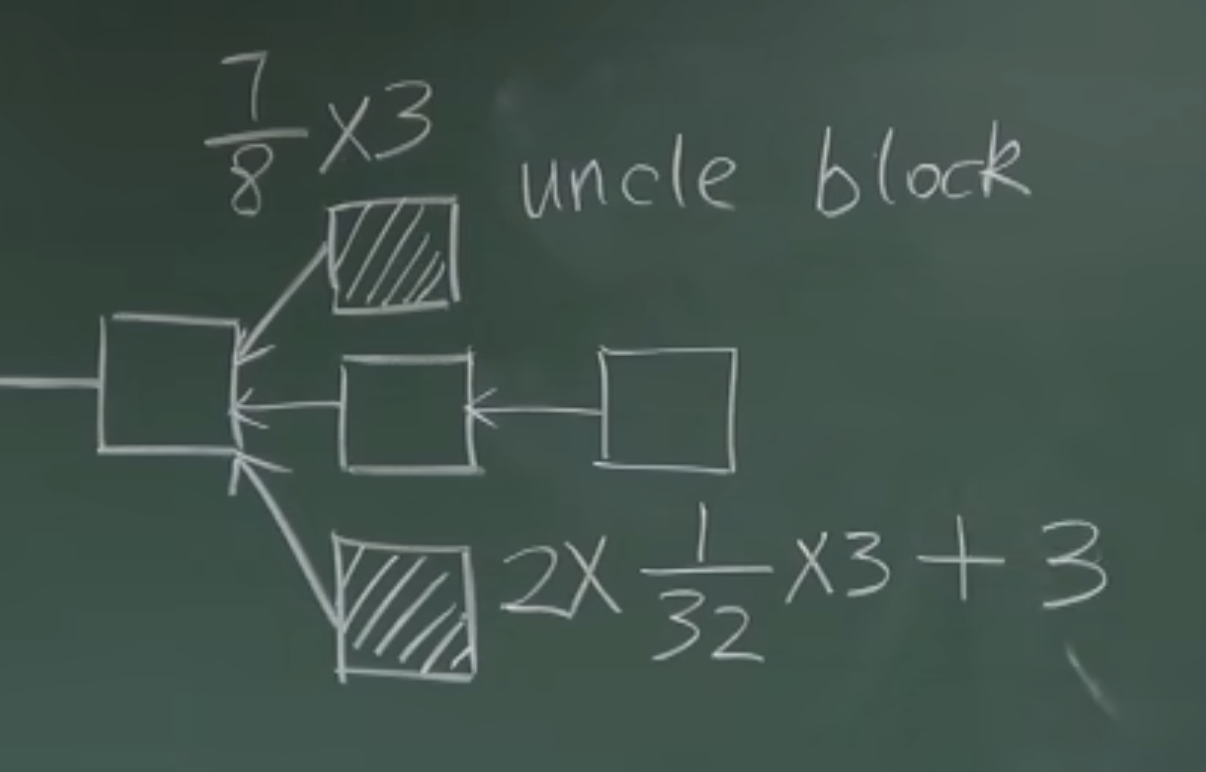 7/8 ×3
uncle block
2× 1/32 ×3 + 3